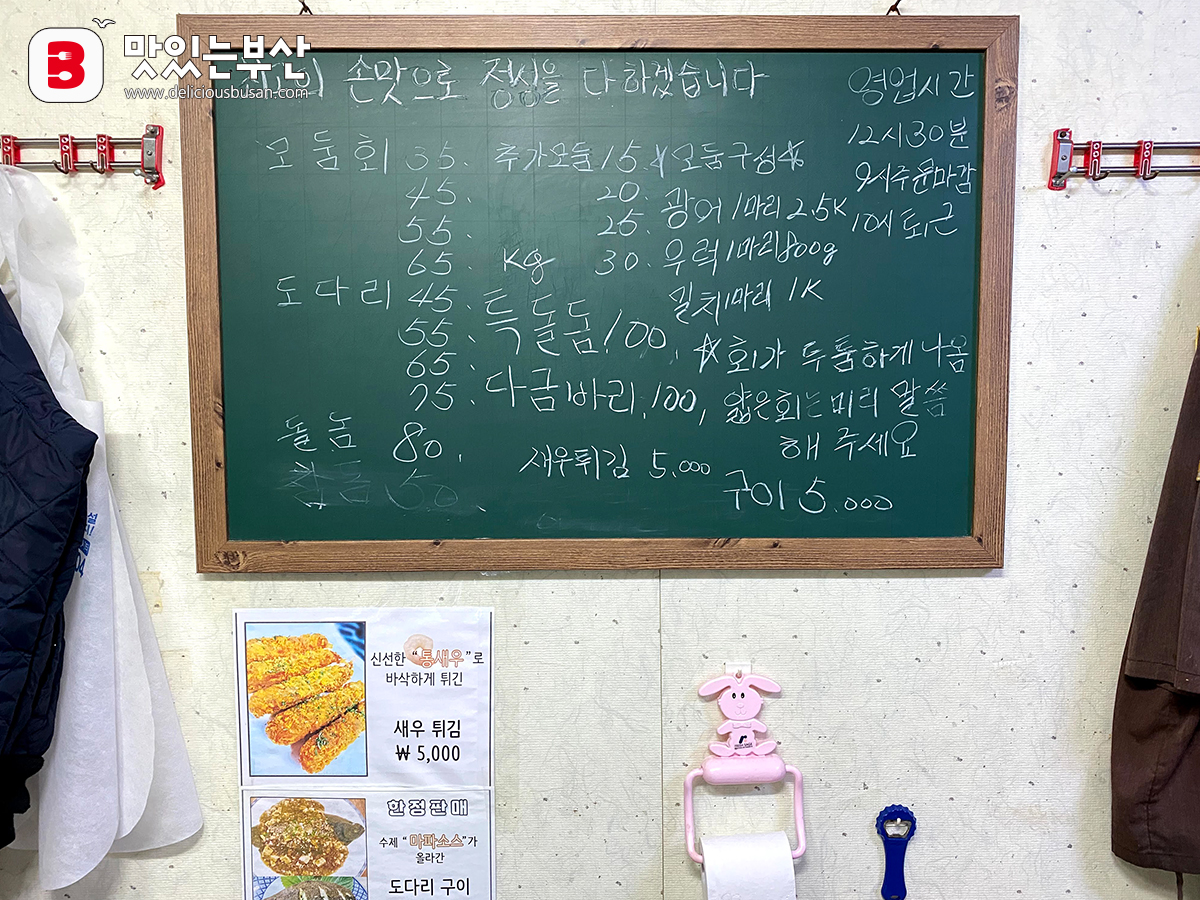 맛있는부산
www.deliciousbusan.com
손맛으로 정성을 다 하겠습니다
영업시간
12시30분
9시주문마감
10시 퇴근
모둠회 35.
45.
55.
65
추가모둠 15.
20.
25.
Kg 30.
☆모둠구성☆
광어 1마리 2.5K
우럭 1마리 800g
밀치 1마리 1K
도다리 45.
55.
65.
75.
특돌돔 100.
다금바리. 100,
☆회가 두툼하게 나옴
얇은회는 미리 말씀
해 주세요
돌돔 80.
참돔 50.
새우튀김 5.000
구이 5.000
신선한 "통새우"로
바삭하게 튀긴
새우 튀김
₩ 5,000
한정판매
수제 "마파소스"가
올라간
도다리 구이